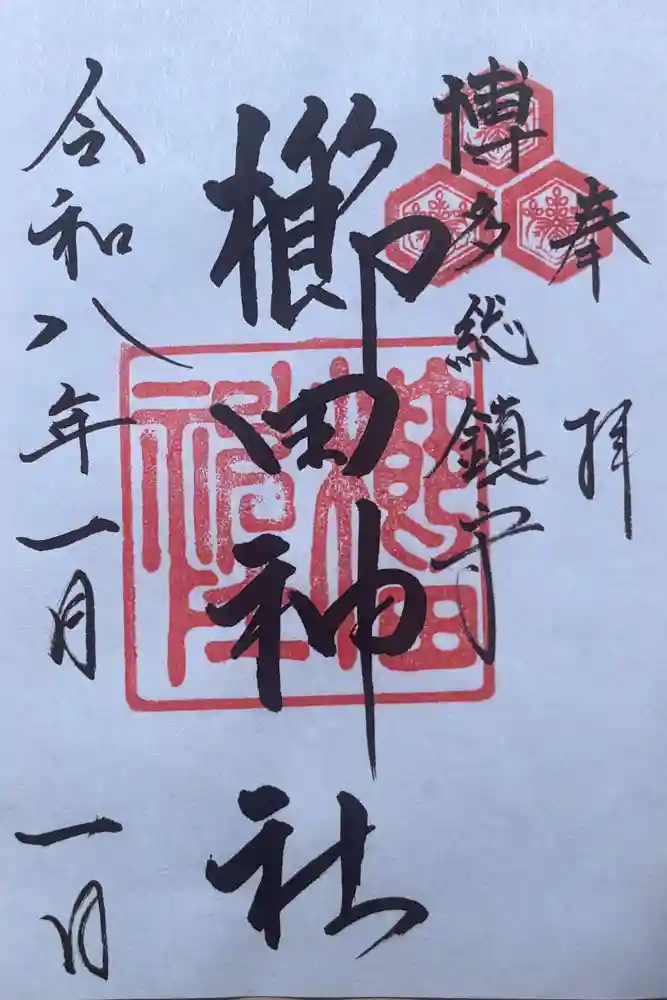 奉拝
博多総鎮守
櫛田神社
櫛田神社
令和八年一月一日